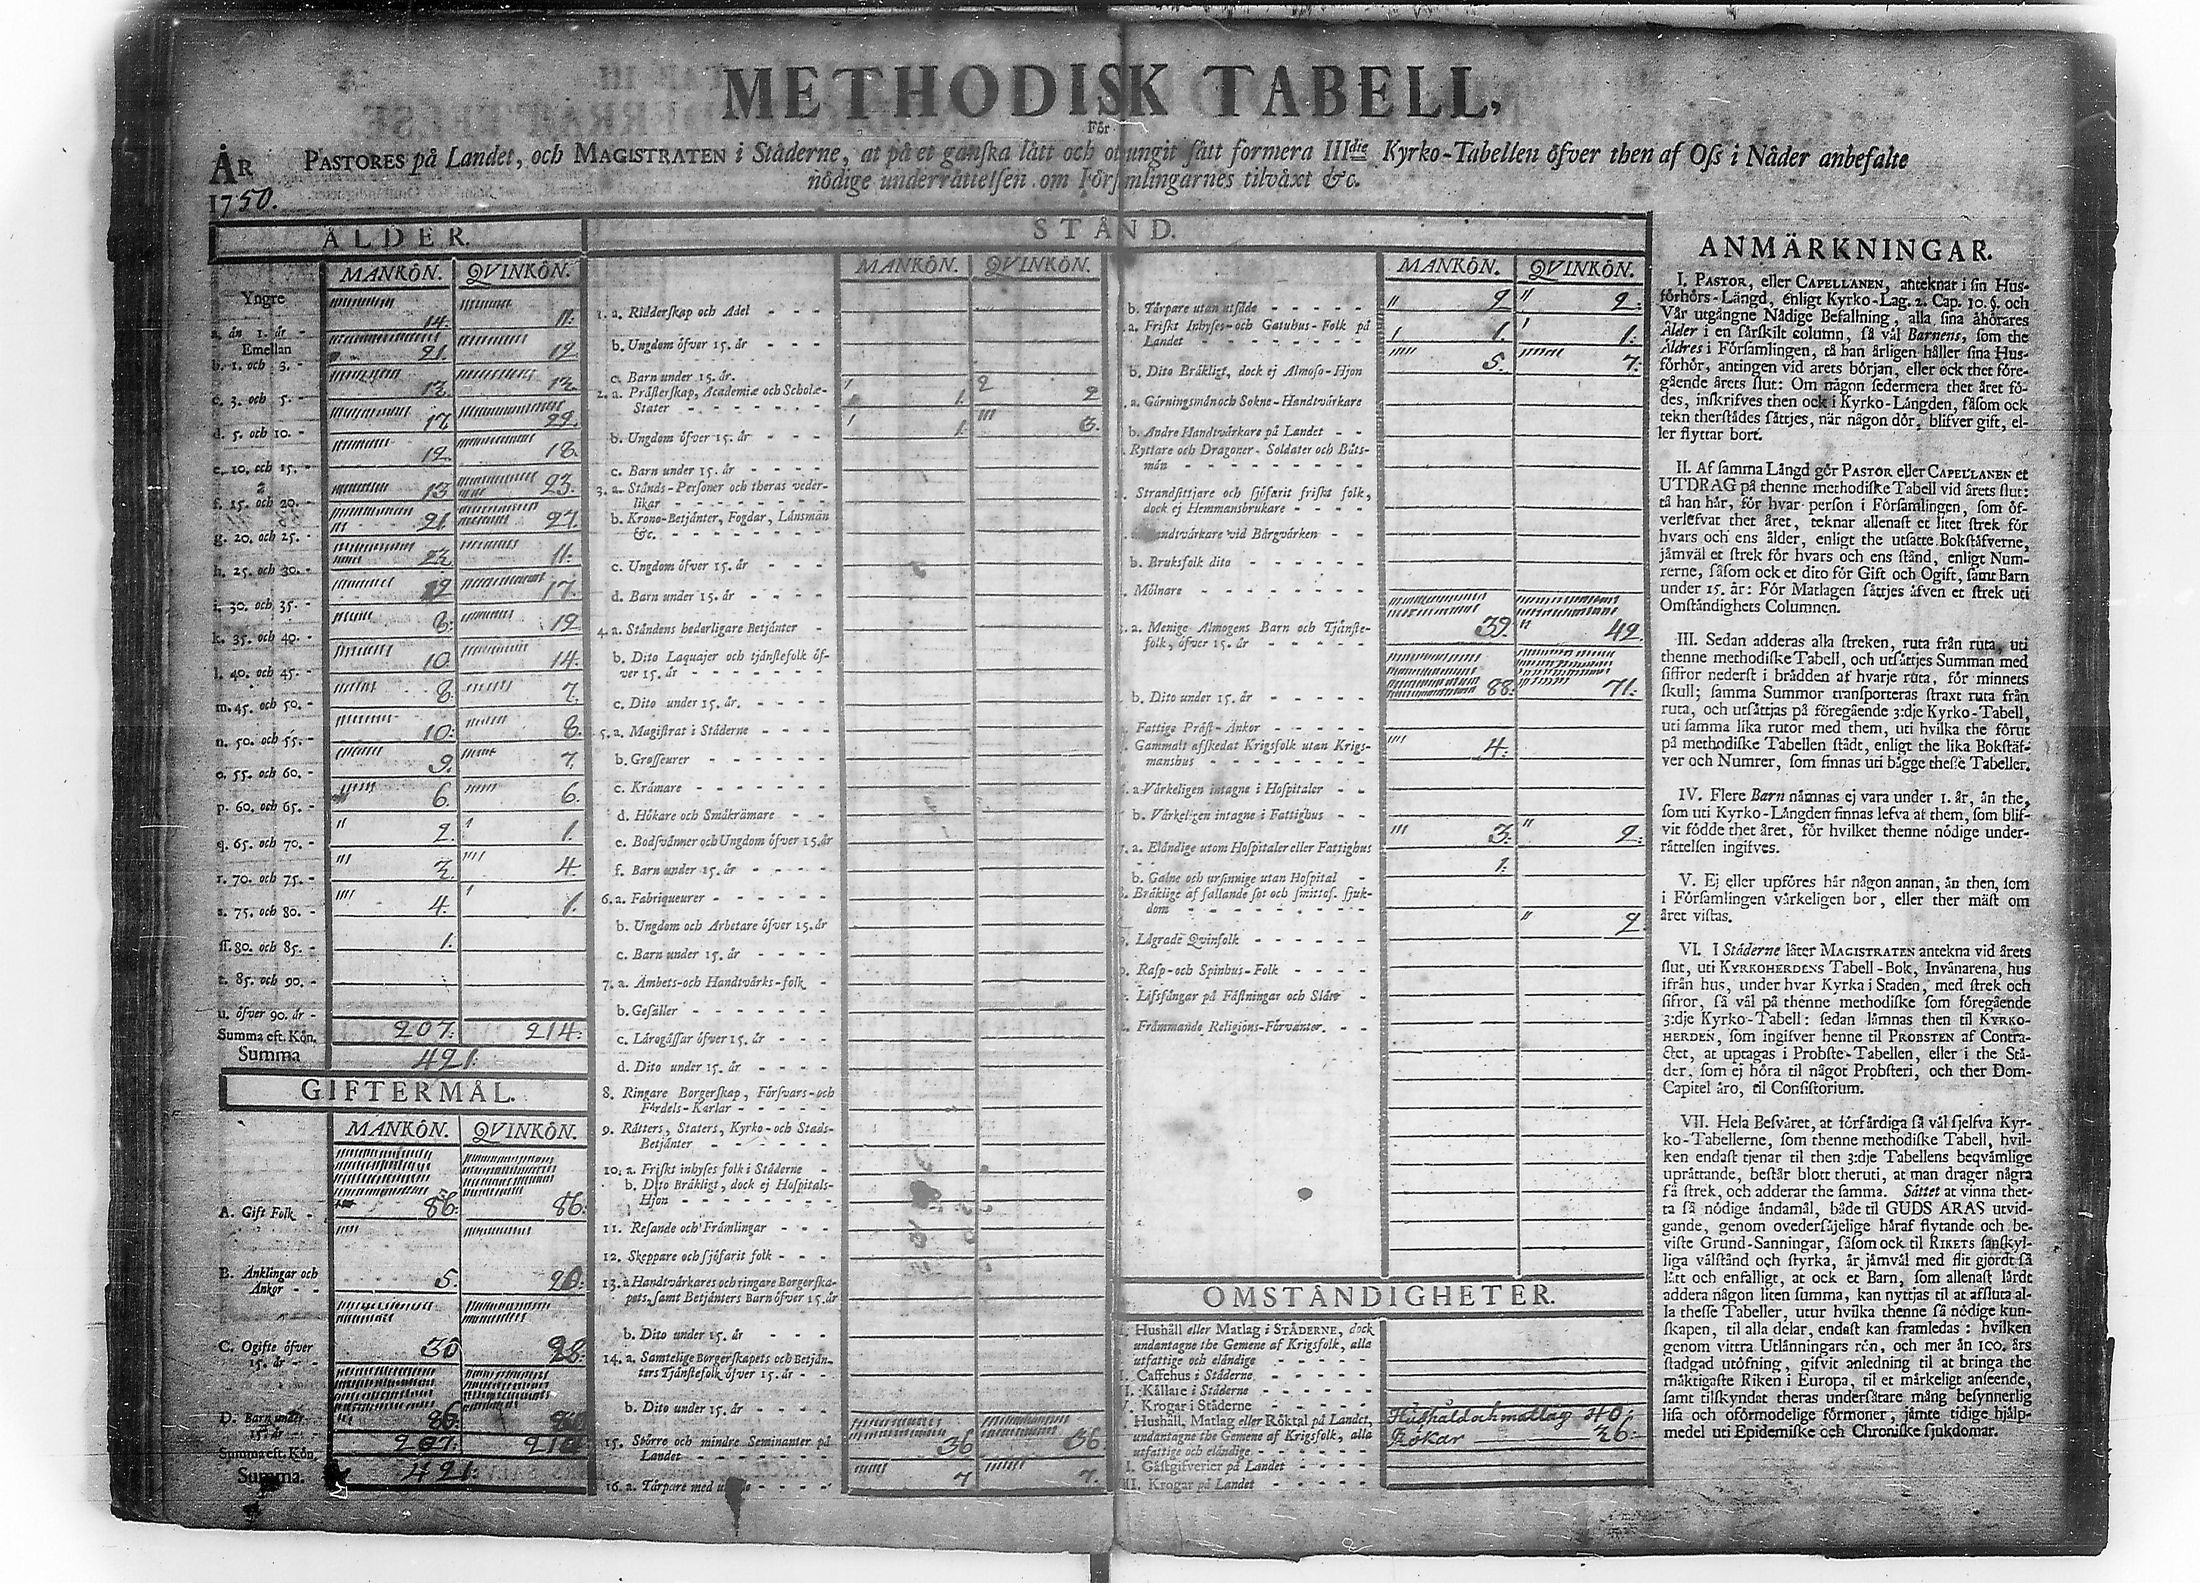 METHODISK TABELL,
För
ÅR 1750.
PASTORES på Landet, och MAGISTRATEN i Städerne, at på et ganska lätt och otungit sätt formera IIIdie Kyrko-Tabellen öfver then af Oss i Nåder anbefalte
nödige underrättelsen om Församlingarnes tilväxt &c.
ÅLDER.
MANKÖN. QVINKÖN.
Yngre
a. än 1. år - 14. 11.
Emellan
b. 1. och 3. - 21. 12.
c. 3. och 5. - 13. 13.
d. 5. och 10. - 17. 22.
e. 10. och 15. - 12. 18.
f. 15. och 20. - 13. 23.
g. 20. och 25. - 21. 27.
h. 25. och 30. - 23. 11.
i. 30. och 35. - 12. 17.
k. 35. och 40. - 8. 12
l. 40. och 45. - 10. 14.
m. 45. och 50. - 8. 7.
n. 50. och 55. - 10. 8.
o. 55. och 60. - 9. 7.
p. 60. och 65. - 6. 6.
q. 65. och 70. - 2. 1.
r. 70. och 75. - 3. 4.
s. 75. och 80. - 4. 1.
ss. 80. och 85. - 1.
t. 85. och 90. -
u. öfver 90. år -
Summa eft. Kön. 207. 214.
Summa 421.
GIFTERMÅL.
MANKÖN. QVINKÖN.
A. Gift Folk - 86. 86.
B. Änklingar och
Änkor - - 5. 20.
C. Ogifte öfver
15. år - - 30 28.
D. Barn under
15. år - - 86.
Summa eft. Kön. 207. 214
Summa. 421.
STÅND.
MANKÖN. QVINKÖN.
1. a. Ridderskap och Adel - - -
b. Ungdom öfver 15. år - - -
c. Barn under 15. år.
2. a. Prästerskap, Academiæ och Scholæ-
Stater - - - - - - 1. 2
b. Ungdom öfver 15. år - - - 1. 3.
c. Barn under 15. år - - - -
3. a. Stånds-Personer och theras veder-
likar - - - - - -
b. Krono-Betjänter, Fogdar, Länsmän
&c. - - - - - - -
c. Ungdom öfver 15. år - - -
d. Barn under 15. år - - - -
4. a. Ståndens hederligare Betjänter -
b. Dito Laquajer och tjänstefolk öf-
ver 15. år - - - - - -
c. Dito under 15. år. - - - -
5. a. Magistrat i Städerne - - - -
b. Grosseurer - - - - - -
c. Krämare - - - - - -
d. Hökare och Småkrämare - - -
e. Bodsvänner och Ungdom öfver 15. år
f. Barn under 15. år - - - -
6. a. Fabriqueurer - - - - -
b. Ungdom och Arbetare öfver 15. år
c. Barn under 15. år - - - -
7. a. Ämbets-och Handtvärks-folk -
b. Gesäller - - - - - -
c. Lärogåssar öfver 15. år - - -
d. Dito under 15. år - - - -
8. Ringare Borgerskap, Försvars-och
Fördels-Karlar - - - - -
9. Rätters, Staters, Kyrko-och Stads-
Betjänter - - - - - -
10. a. Friskt inhyses folk i Städerne -
b. Dito Bräkligt, dock ej Hospitals-
Hjon - - - - - - -
11. Resande och Främlingar - - -
12. Skeppare och sjöfarit folk - - -
13. a Handtvärkares och ringare Borgerska-
pets, samt Betjänters Barn öfver 15. år
b. Dito under 15. år - - -
14. a. Samtelige Borgerskapets och Betjän-
ters Tjänstefolk öfver 15. år - -
b. Dito under 15. år - - - -
15. Större och mindre Seminanter på
Landet - - - - - - 36 36
16. a. Tärpare med - - - - 7 7.
MANKÖN. QVINKÖN.
b. Tärpare utan utsäde - - - - 2 2.
a. Friskt Inhyses-och Gatuhus-Folk på
Landet - - - - - - - - 1. 1.
b. Dito Bräkligt, dock ej Almoso-Hjon 5. 7.
a. Gärningsmän och Sokne-Handtvärkare
b. Andre Handtvärkare på Landet - -
Ryttare och Dragoner- Soldater och Båts-
män - - - - - - - -
Strandsittjare och sjöfarit friskt folk,
dock ej Hemmansbrukare - - - -
Handtvärkare vid Bärgvärken - -
b. Bruksfolk dito - - - - - -
Mölnare - - - - - - - -
a. Menige Almogens Barn och Tjänste-
folk, öfver 15. år - - - - - 39. 42.
b. Dito under 15. år - - - - - 88. 71.
Fattige Präst-Änkor - - - -
Gammalt afskedat Krigsfolk utan Krigs-
manshus - - - - - - - 4.
a. Värkeligen intagne i Hospitaler - -
b. Värkeligen intagne i Fattighus - -
7. a. Eländige utom Hospitaler eller Fattighus 3. 2.
b. Galne och ursinnige utan Hospital - 1.
Bräklige af fallande sot och smittos. sjuk-
dom - - - - - - - -
Lägrade Qvinfolk - - - - - - 2.
Rasp-och Spinhus-Folk - - - -
Lifsfångar på Fästningar och Slått -
Främmande Religions-Förvanter. - -
OMSTÄNDIGHETER.
Hushåll eller Matlag i STÄDERNE, dock
undantagne the Gemene af Krigsfolk, alla
utfattige och eländige - - - - -
Caffehus i Städerne - - - - -
Källare i Städerne - - - - - -
Krogar i Städerne - - - - -
Hushåll, Matlag eller Röktal på Landet,
undantagne the Gemene af Krigsfolk, alla
utfattige och eländige - - - - -
Hushåld och matlag 40.
Rökar 36.
I. Gästgifverier på Landet - - - -
II. Krogar på Landet - - - -
ANMÄRKNINGAR.
I. PASTOR, eller CAPELLANEN, anteknar i sin Hus-
förhörs-Längd, enligt Kyrko-Lag. 2. Cap. 10. §. och
Vår utgångne Nådige Befallning, alla sina åhörares
Ålder i en särskilt column, så väl Barnens, som the
Äldres i Församlingen, tå han årligen håller sina Hus-
förhör, antingen vid årets början, eller ock thet före-
gående årets slut: Om någon sedermera thet året fö-
des, inskrifves then ock i Kyrko-Längden, såsom ock
tekn therstädes sättjes, när någon dör, blifver gift, el-
ler flyttar bort.
II. Af samma Längd gör PASTOR eller CAPELLANEN et
UTDRAG på thenne methodiske Tabell vid årets slut:
tå han här, för hvar person i Församlingen, som öf-
verlefvat thet året, teknar allenast et litet strek för
hvars och ens ålder, enligt the utsatte Bokstäfverne,
jämväl et strek för hvars och ens stånd, enligt Num-
rerne, såsom ock et dito för Gift och Ogift, samt Barn
under 15. år: För Matlagen sättjes äfven et strek uti
Omständighets Columnen.
III. Sedan adderas alla streken, ruta från ruta, uti
thenne methodiske Tabell, och utsättjes Summan med
siffror nederst i brädden af hvarje ruta, för minnets
skull; samma Summor transporteras straxt ruta från
ruta, och utsättjas på föregående 3:dje Kyrko-Tabell,
uti samma lika rutor med them, uti hvilka the förut
på methodiske Tabellen städt, enligt the lika Bokstäf-
ver och Numrer, som finnas uti bägge thesse Tabeller.
IV. Flere Barn nämnas ej vara under 1. år, än the,
som uti Kyrko-Längden finnas lefva af them, som blif-
vit födde thet året, för hvilket thenne nödige under-
rättelsen ingifves.
V. Ej eller upföres här någon annan, än then, som
i Församlingen värkeligen bor, eller ther mäst om
året vistas.
VI. I Städerne låter MAGISTRATEN antekna vid årets
slut, uti KYRKOHERDENS Tabell-Bok, Invånarena, hus
ifrån hus, under hvar Kyrka i Staden, med strek och
sifror, så väl på thenne methodiske som föregående
3:dje Kyrko-Tabell: sedan lämnas then til KYRKO-
HERDEN, som ingifver henne til PROBSTEN af Contra-
ctet, at uptagas i Probste-Tabellen, eller i the Stä-
der, som ej höra til något Probsteri, och ther Dom-
Capitel äro, til Consistorium.
VII. Hela Besväret, at förfärdiga så väl sjelfva Kyr-
ko-Tabellerne, som thenne methodiske Tabell, hvil-
ken endast tjenar til then 3:dje Tabellens beqvämlige
uprättande, består blott theruti, at man drager några
få strek, och adderar the samma. Sättet at vinna thet-
ta så nödige ändamål, både til GUDS ÄRAS utvid-
gande, genom ovedersäjelige häraf flytande och be-
viste Grund-Sanningar, såsom ock til RIKETS sanskyl-
liga välstånd och styrka, är jämväl med flit gjordt så
lätt och enfalligt, at ock et Barn, som allenast lärdt
addera någon liten summa, kan nyttjas til at afsluta al-
la thesse Tabeller, utur hvilka thenne så nödige kun-
skapen, til alla delar, endast kan framledas: hvilken
genom vittra Utlänningars rön, och mer än 100. års
stadgad utöfning, gifvit anledning til at bringa the
mäktigaste Riken i Europa, til et märkeligt anseende,
samt tilskyndat theras undersåtare mång besynnerlig
lisa och oförmodelige förmoner, jämte tidige hjälp-
medel uti Epidemiske och Chroniske sjukdomar.